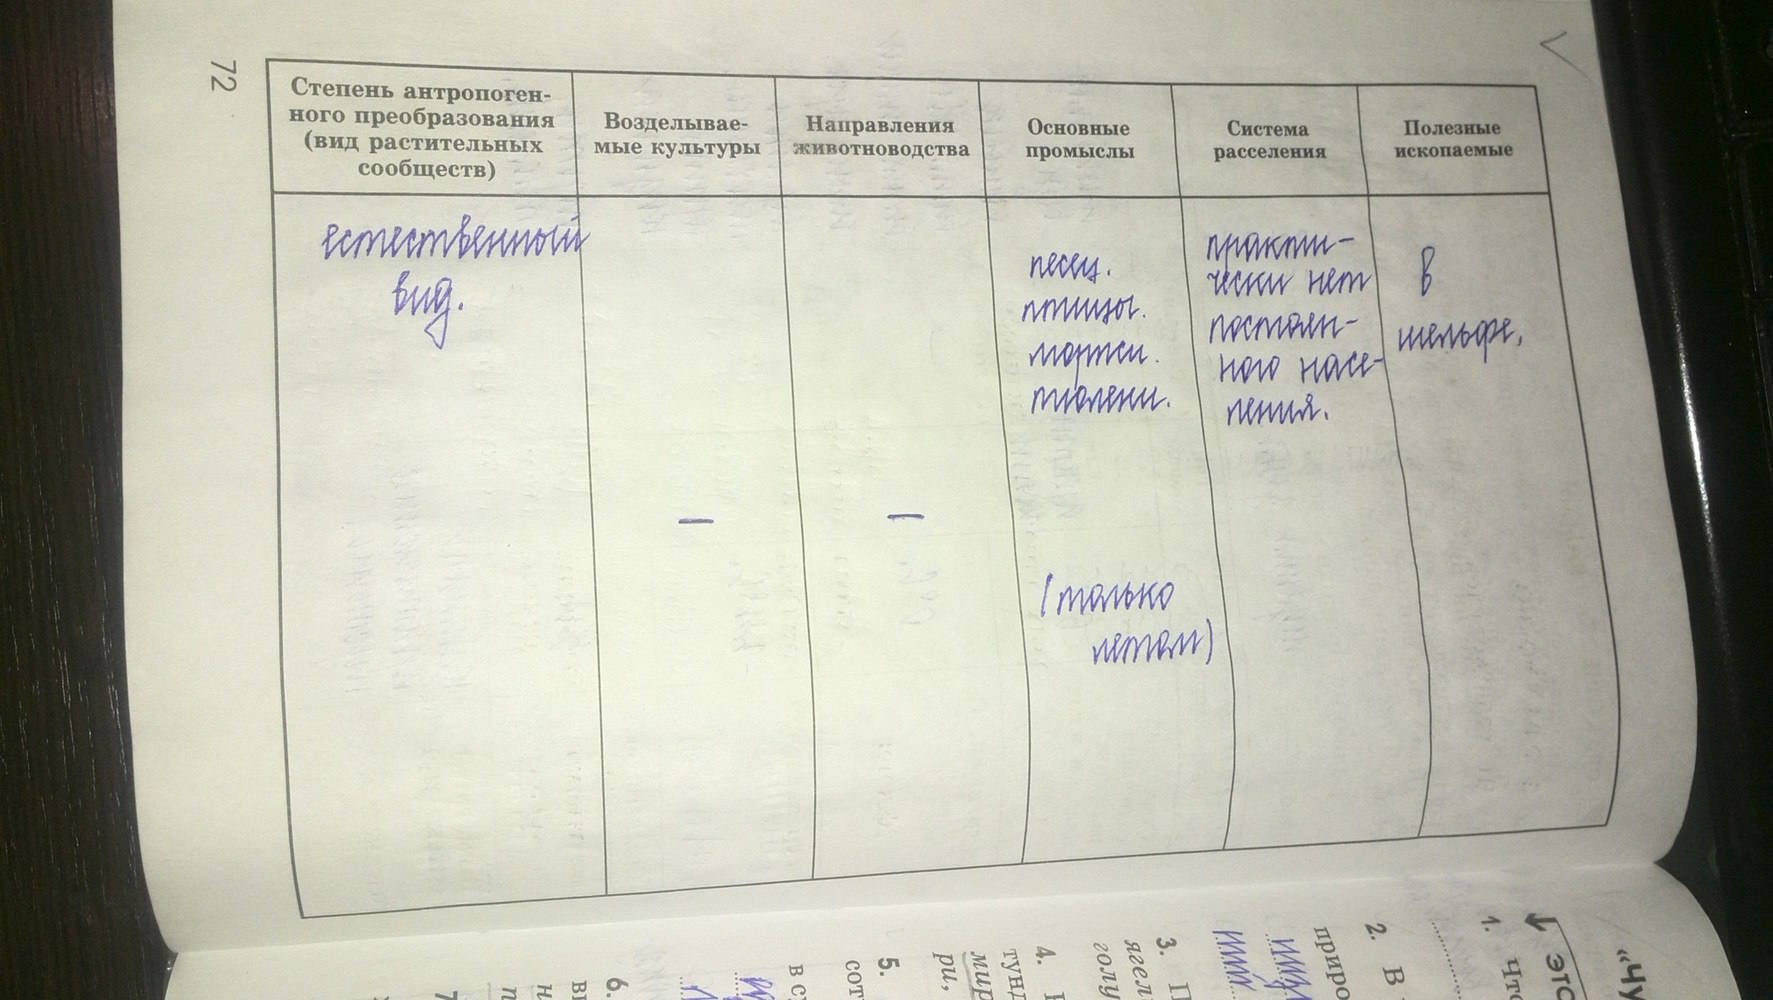 72
Степень антропоген-
ного преобразования
(вид растительных
сообществ)
Возделывае-
мые культуры
Направления
животноводства
Основные
промыслы
Система
расселения
Полезные
ископаемые
естественный
вид.
—
—
песец.
птицы.
моржи.
тюлени.
(только
летом)
практи-
чески нет
постоян-
ного насе-
ления.
в
шельфе.
1.
2. В
приро
3.
4.
5.
6.
7